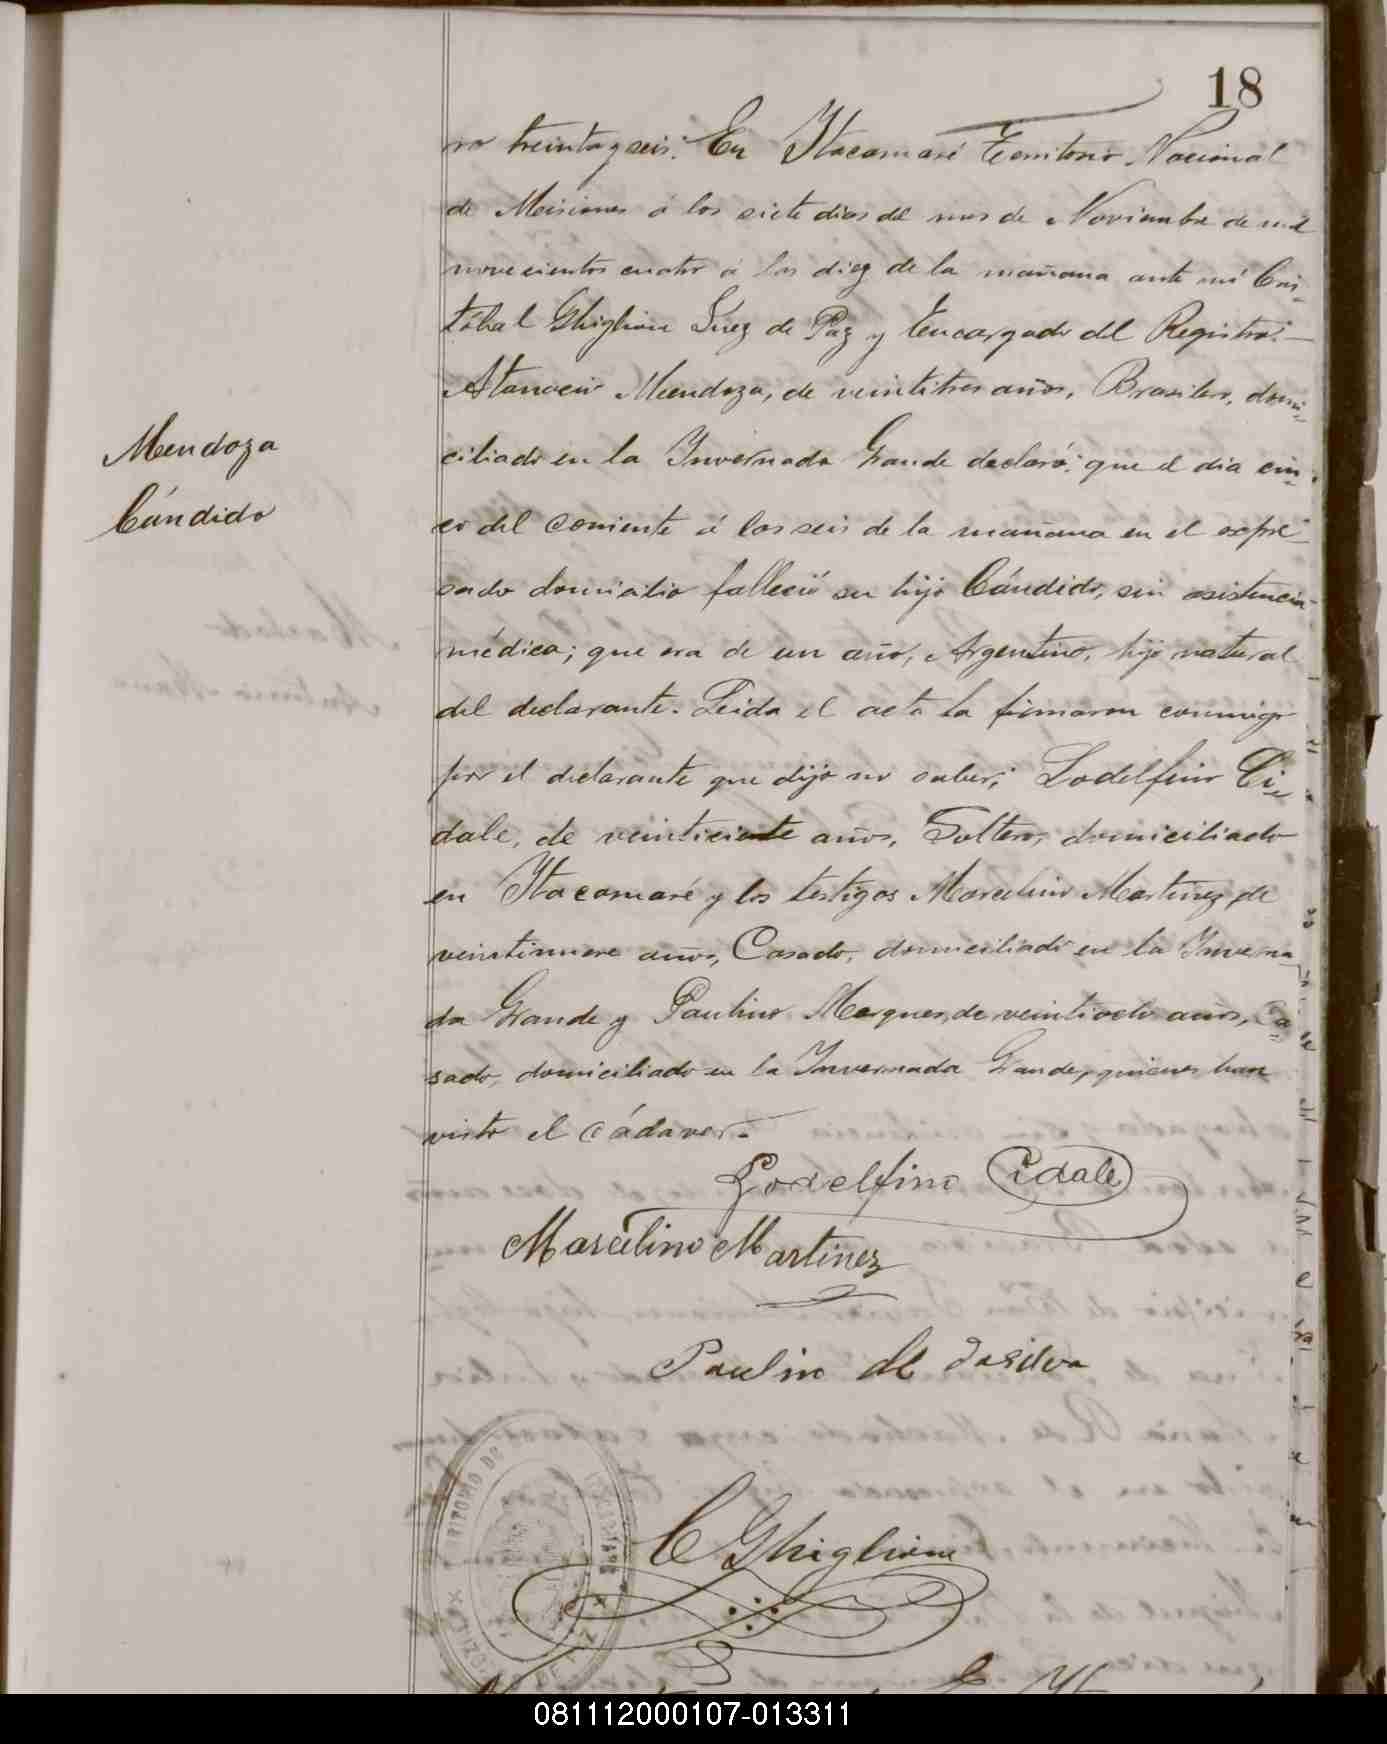 18
ro treinta y seis: En Ytacomaré Territorio Nacional
de Misiones á los siete dias del mes de Noviembre de mil
novecientos cuatro á las diez de la mañana ante mi Cris-
tóbal Ghiglione Juez de Paz y Encargado del Registro:
Atanacio Mendoza, de veintitres años, Brasilero, domi-
ciliado en la Invernada Grande declaró: que el dia cin-
co del corriente á las seis de la mañana en el expre-
sado domicilio falleció su hijo Cándido, sin asistencia
médica; que era de un año, Argentino, hijo natural
del declarante. Leida el acta la firmaron conmigo
por el declarante que dijo no saber; Lodelfino Ci-
dale, de veinticiente años, Soltero, domiciliado
en Ytacomaré y los testigos Marcelino Martinez, de
veintinueve años, Casado, domiciliado en la Inverna-
da Grande y Paulino Marques, de veintiocho años, Ca-
sado, domiciliado en la Invernada Grande, quienes han
visto el cádaver.
Mendoza
Cándido
Lodelfino Cidale
Marcelino Martinez
Paulino M dasilva
C Ghiglione
081112000107-013311